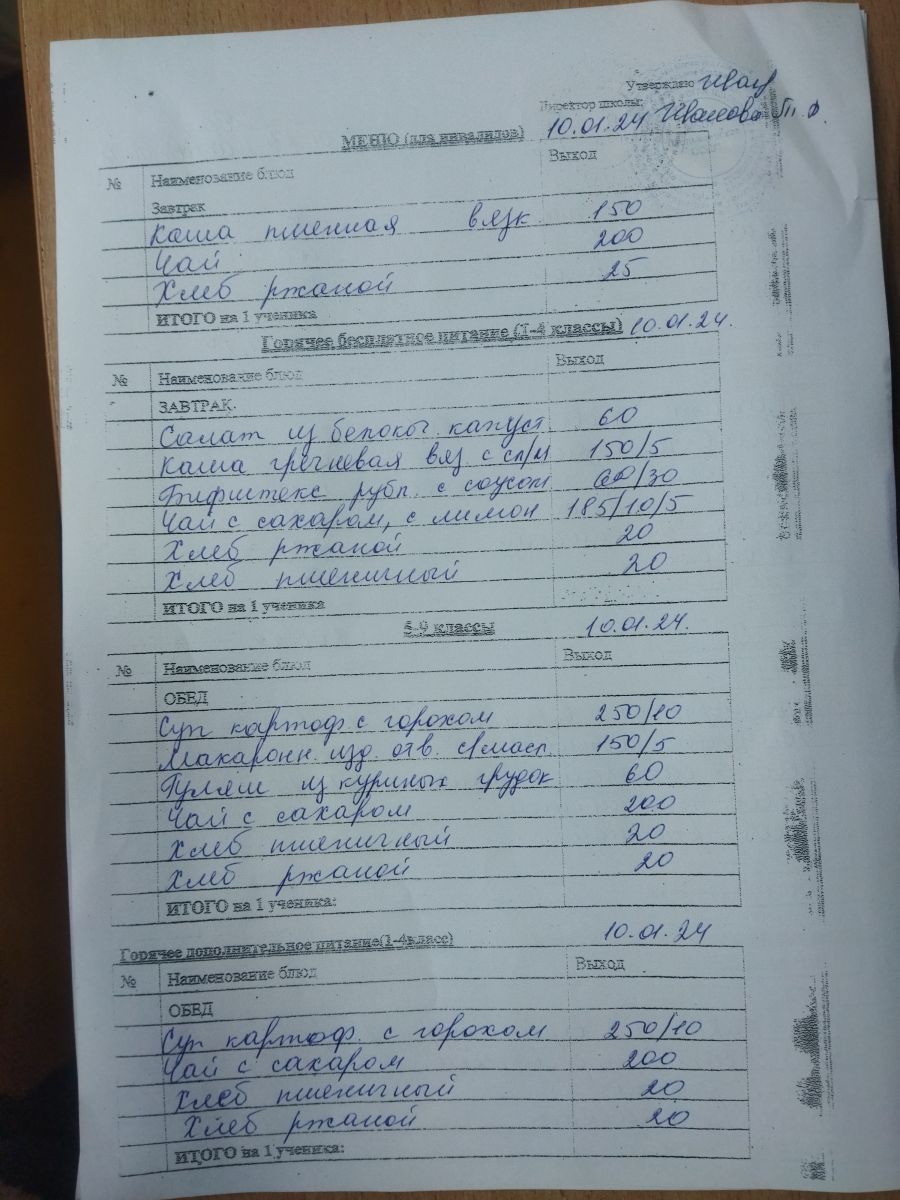 Утверждаю Иван
Директор школы:
МЕНЮ (для инвалидов) 10.01.24 Иванова
№ Наименование блюд Выход
Завтрак
Каша пшенная вязк 150
Чай 200
Хлеб ржаной 25
ИТОГО на 1 ученика
Горячее бесплатное питание (1-4 классы) 10.01.24.
№ Наименование блюд Выход
ЗАВТРАК
Салат из белокоч. капуст 60
Каша гречневая вяз с сл/м 150/5
Бифштекс рубл. с соусом 60/30
Чай с сахаром, с лимон 185/10/5
Хлеб ржаной 20
Хлеб пшеничный 20
ИТОГО на 1 ученика
5-9 классы 10.01.24.
№ Наименование блюд Выход
ОБЕД
Суп картоф. с горохом 250/10
Макаронн. изд. отв. с/масл. 150/5
Гуляш из куриных грудок 60
Чай с сахаром 200
Хлеб пшеничный 20
Хлеб ржаной 20
ИТОГО на 1 ученика:
Горячее дополнительное питание(1-4класс) 10.01.24
№ Наименование блюд Выход
ОБЕД
Суп картоф. с горохом 250/10
Чай с сахаром 200
Хлеб пшеничный 20
Хлеб ржаной 20
ИТОГО на 1 ученика: